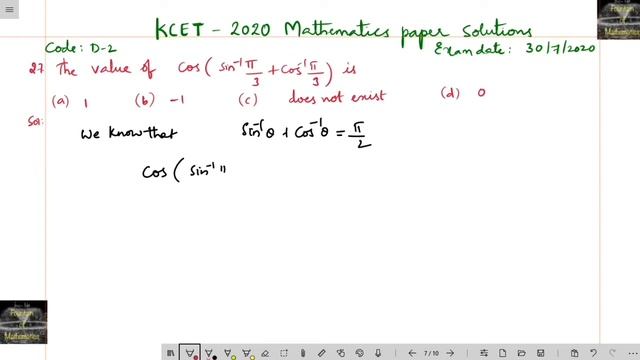 KCET - 2020 Mathematics paper Solutions
Code: D-2 Exam date: 30/7/2020
27 The value of cos(sin⁻¹ π/3 + cos⁻¹ π/3) is
(a) 1 (b) -1 (c) does not exist (d) 0
Sol:
We know that sin⁻¹θ + cos⁻¹θ = π/2
cos( sin⁻¹ π
Fountain of Mathematics
7 / 10